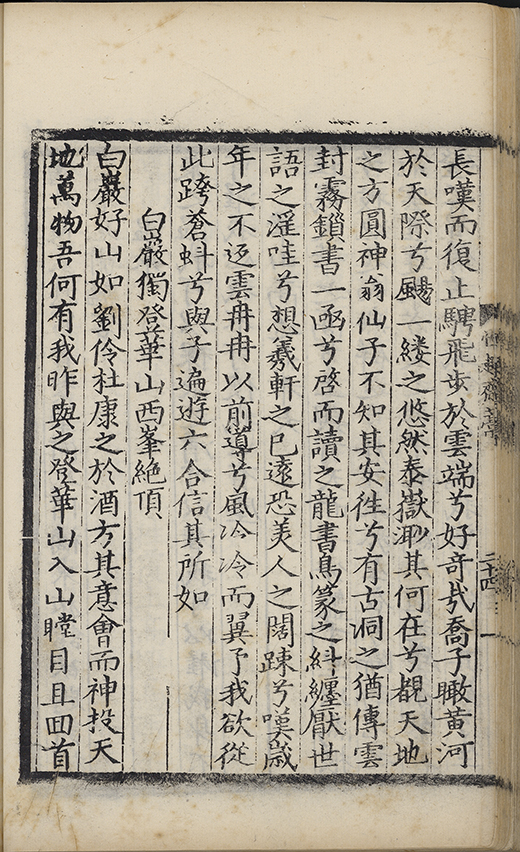 長嘆而復止騁飛步於雲端兮好奇哉喬子瞰黃河
於天際兮颺一縷之悠然泰嶽渺其何在兮覩天地
之方圓神翁仙子不知其安徃兮有古洞之猶傳雲
封霧鎖書一函兮啓而讀之龍書鳥篆之糾纏厭世
語之滛哇兮想羲軒之已遠恐美人之闊踈兮嘆歲
年之不返雲冉冉以前導兮風泠泠而翼予我欲從
此跨蒼虯兮與子遍遊六合信其所如
白巖獨登華山西峯絶頂
白巖好山如劉伶杜康之於酒方其意會而神投天
地萬物吾何有我昨與之登華山入山瞠目且回首
二十四